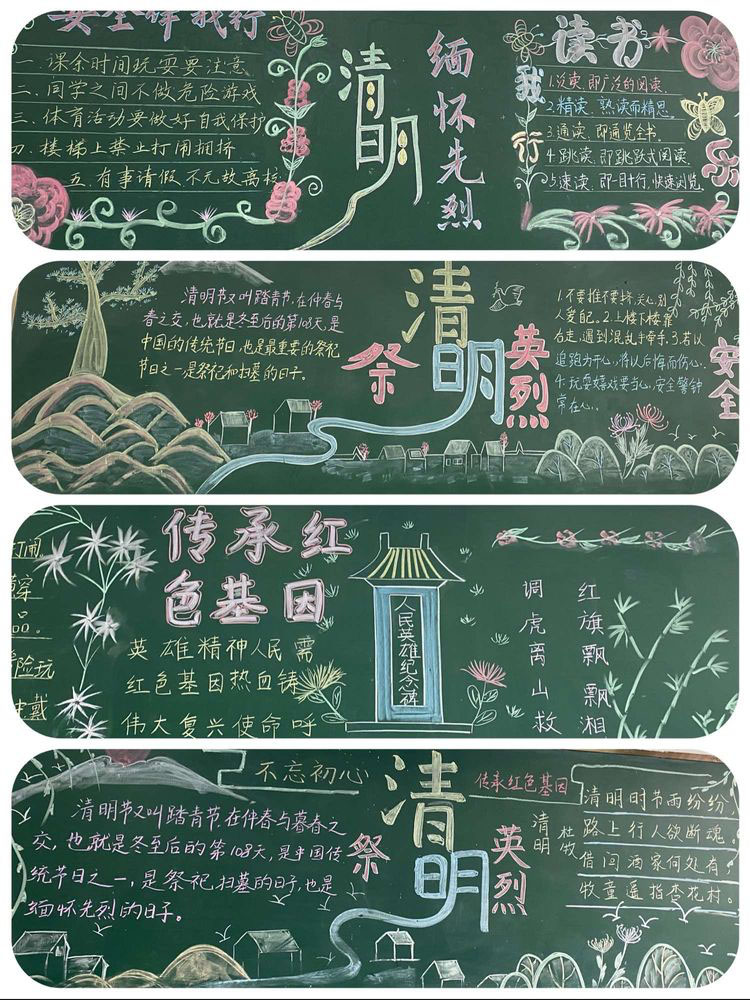 安全伴我行
一.课余时间玩耍要注意
二.同学之间不做危险游戏
三.体育活动要做好自我保护
四.楼梯上禁止打闹拥挤
五.有事请假不无故离校
清明
缅怀先烈
我行
读书
1.泛读.即广泛的阅读.
2.精读.熟读而精思.
3.通读.即通览全书.
4.跳读.即跳跃式阅读.
5.速读.即一目十行,快速浏览.
乐
清明节又叫踏青节,在仲春与
春之交,也就是冬至后的第108天,是
中国的传统节日,也是最重要的祭祀
节日之一是祭祀和扫墓的日子。
祭
清明
英烈
1.不要推不要挤,关心别
人爱自己.2.上楼下楼靠
右走,遇到混乱手牵手.3.若以
追跑为开心,将以后悔而伤心.
4.玩耍嬉戏要当心,安全警钟
常在心..
安全
打闹
品
险玩
戴
传承红
色基因
英雄精神人民需
红色基因热血铸
伟大复兴使命呼
人民英雄纪念碑
调虎离山救
红旗飘飘湘
不忘初心
清明节又叫踏青节,在仲春与暮春之
交,也就是冬至后的第108天,是中国传
统节日之一,是祭祀,扫墓的日子,也是
缅怀先烈的日子。
祭
清明
英烈
传承红色基因
清明
杜牧
清明时节雨纷纷
路上行人欲断魂
借问酒家何处有
牧童遥指杏花村.